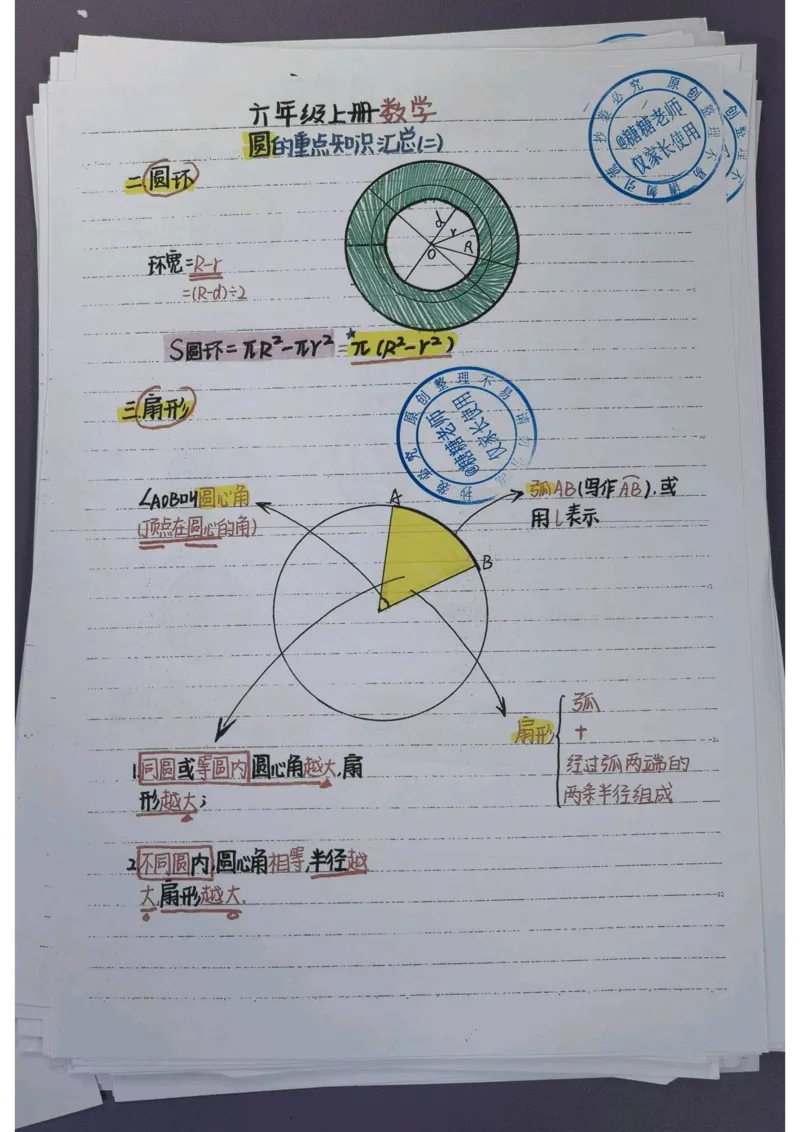 六年级上册数学
圆的重点知识汇总(二)
二圆环
d
r
R
O
环宽=R-r
=(R-d)÷2
S圆环=πR²-πr²=π(R²-r²)
三扇形
∠AOB叫圆心角
(顶点在圆心的角)
A
B
弧AB(写作AB),或
用l表示
扇形
弧
+
经过弧两端的
两条半径组成
1.同圆或等圆内圆心角越大,扇
形越大;
2.不同圆内,圆心角相等,半径越
大,扇形越大.
原创整理不易请勿引流抄袭必究
@糖糖老师
仅家长使用
原创整理不易请勿引流抄袭必究
@糖糖老师
仅家长使用